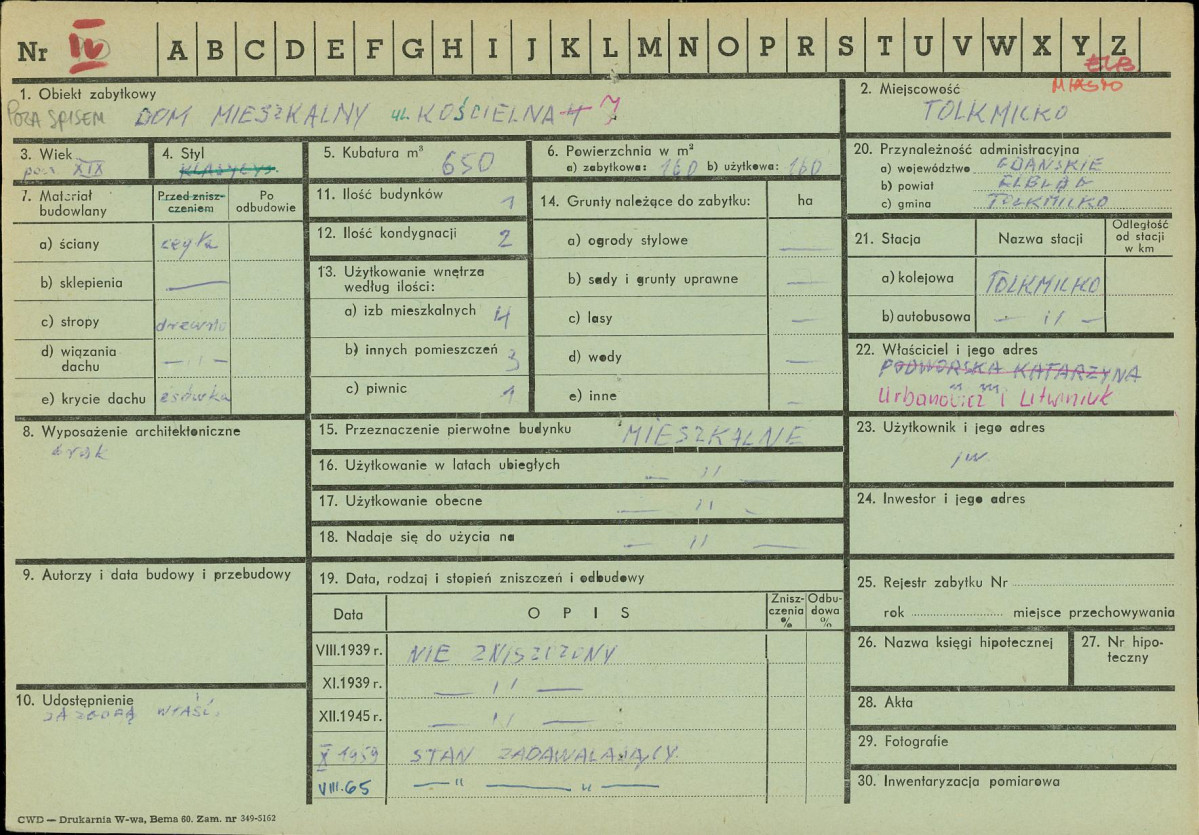 Nr IV A B C D E F G H I J K L M N O P R S T U V W X Y Z
ELB
MIASTO
1. Obiekt zabytkowy
POZA SPISEM DOM MIESZKALNY ul. KOŚCIELNA 7
2. Miejscowość
TOLKMICKO
3. Wiek
XIX
4. Styl
KLASYCYS.
5. Kubatura m³ 650
6. Powierzchnia w m²
a) zabytkowa: 160 b) użytkowa: 160
20. Przynależność administracyjna
a) województwo GDAŃSKIE
b) powiat ELBLĄG
c) gmina TOLKMICKO
7. Materiał budowlany
Przed znisz-
czeniem
Po
odbudowie
a) ściany cegła
b) sklepienia —
c) stropy drewno
d) wiązania dachu — 11 —
e) krycie dachu esówka
11. Ilość budynków 1
12. Ilość kondygnacji 2
13. Użytkowanie wnętrza
według ilości:
a) izb mieszkalnych 4
b) innych pomieszczeń 3
c) piwnic 1
14. Grunty należące do zabytku: ha
a) ogrody stylowe —
b) sady i grunty uprawne —
c) lasy —
d) wody —
e) inne —
21. Stacja Nazwa stacji
Odległość
od stacji
w km
a) kolejowa TOLKMICKO
b) autobusowa — 11 —
22. Właściciel i jego adres
PODWORSKA KATARZYNA
Urbanowicz i Litwiniuk
8. Wyposażenie architektoniczne
brak
15. Przeznaczenie pierwotne budynku MIESZKALNE
16. Użytkowanie w latach ubiegłych — 11 —
17. Użytkowanie obecne — 11 —
18. Nadaje się do użycia na — 11 —
23. Użytkownik i jego adres
jw
24. Inwestor i jego adres
9. Autorzy i data budowy i przebudowy
19. Data, rodzaj i stopień zniszczeń i odbudowy
Data OPIS
Znisz-
czenia
%
Odbu-
dowa
%
VIII.1939 r. NIE ZNISZCZONY
XI.1939 r. — 11 —
XII.1945 r. — 11 —
X 1959 STAN ZADAWALAJĄCY.
VIII.65 — " — " —
25. Rejestr zabytku Nr
rok miejsce przechowywania
26. Nazwa księgi hipotecznej
27. Nr hipo-
teczny
10. Udostępnienie
ZA ZGODĄ WŁAŚC.
28. Akta
29. Fotografie
30. Inwentaryzacja pomiarowa
CWD — Drukarnia W-wa, Bema 60. Zam. nr 349-5162